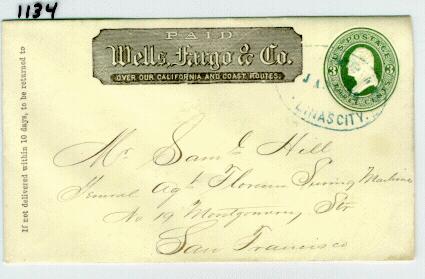 1134
PAID
Wells, Fargo & Co.
OVER OUR CALIFORNIA AND COAST ROUTES.
U.S. POSTAGE
JA
LINAS CITY.
If not delivered within 10 days, to be returned to
Mr. Saml Hill
General Agt Florence Sewing Machine
No 19 Montgomery Str
San Francisco